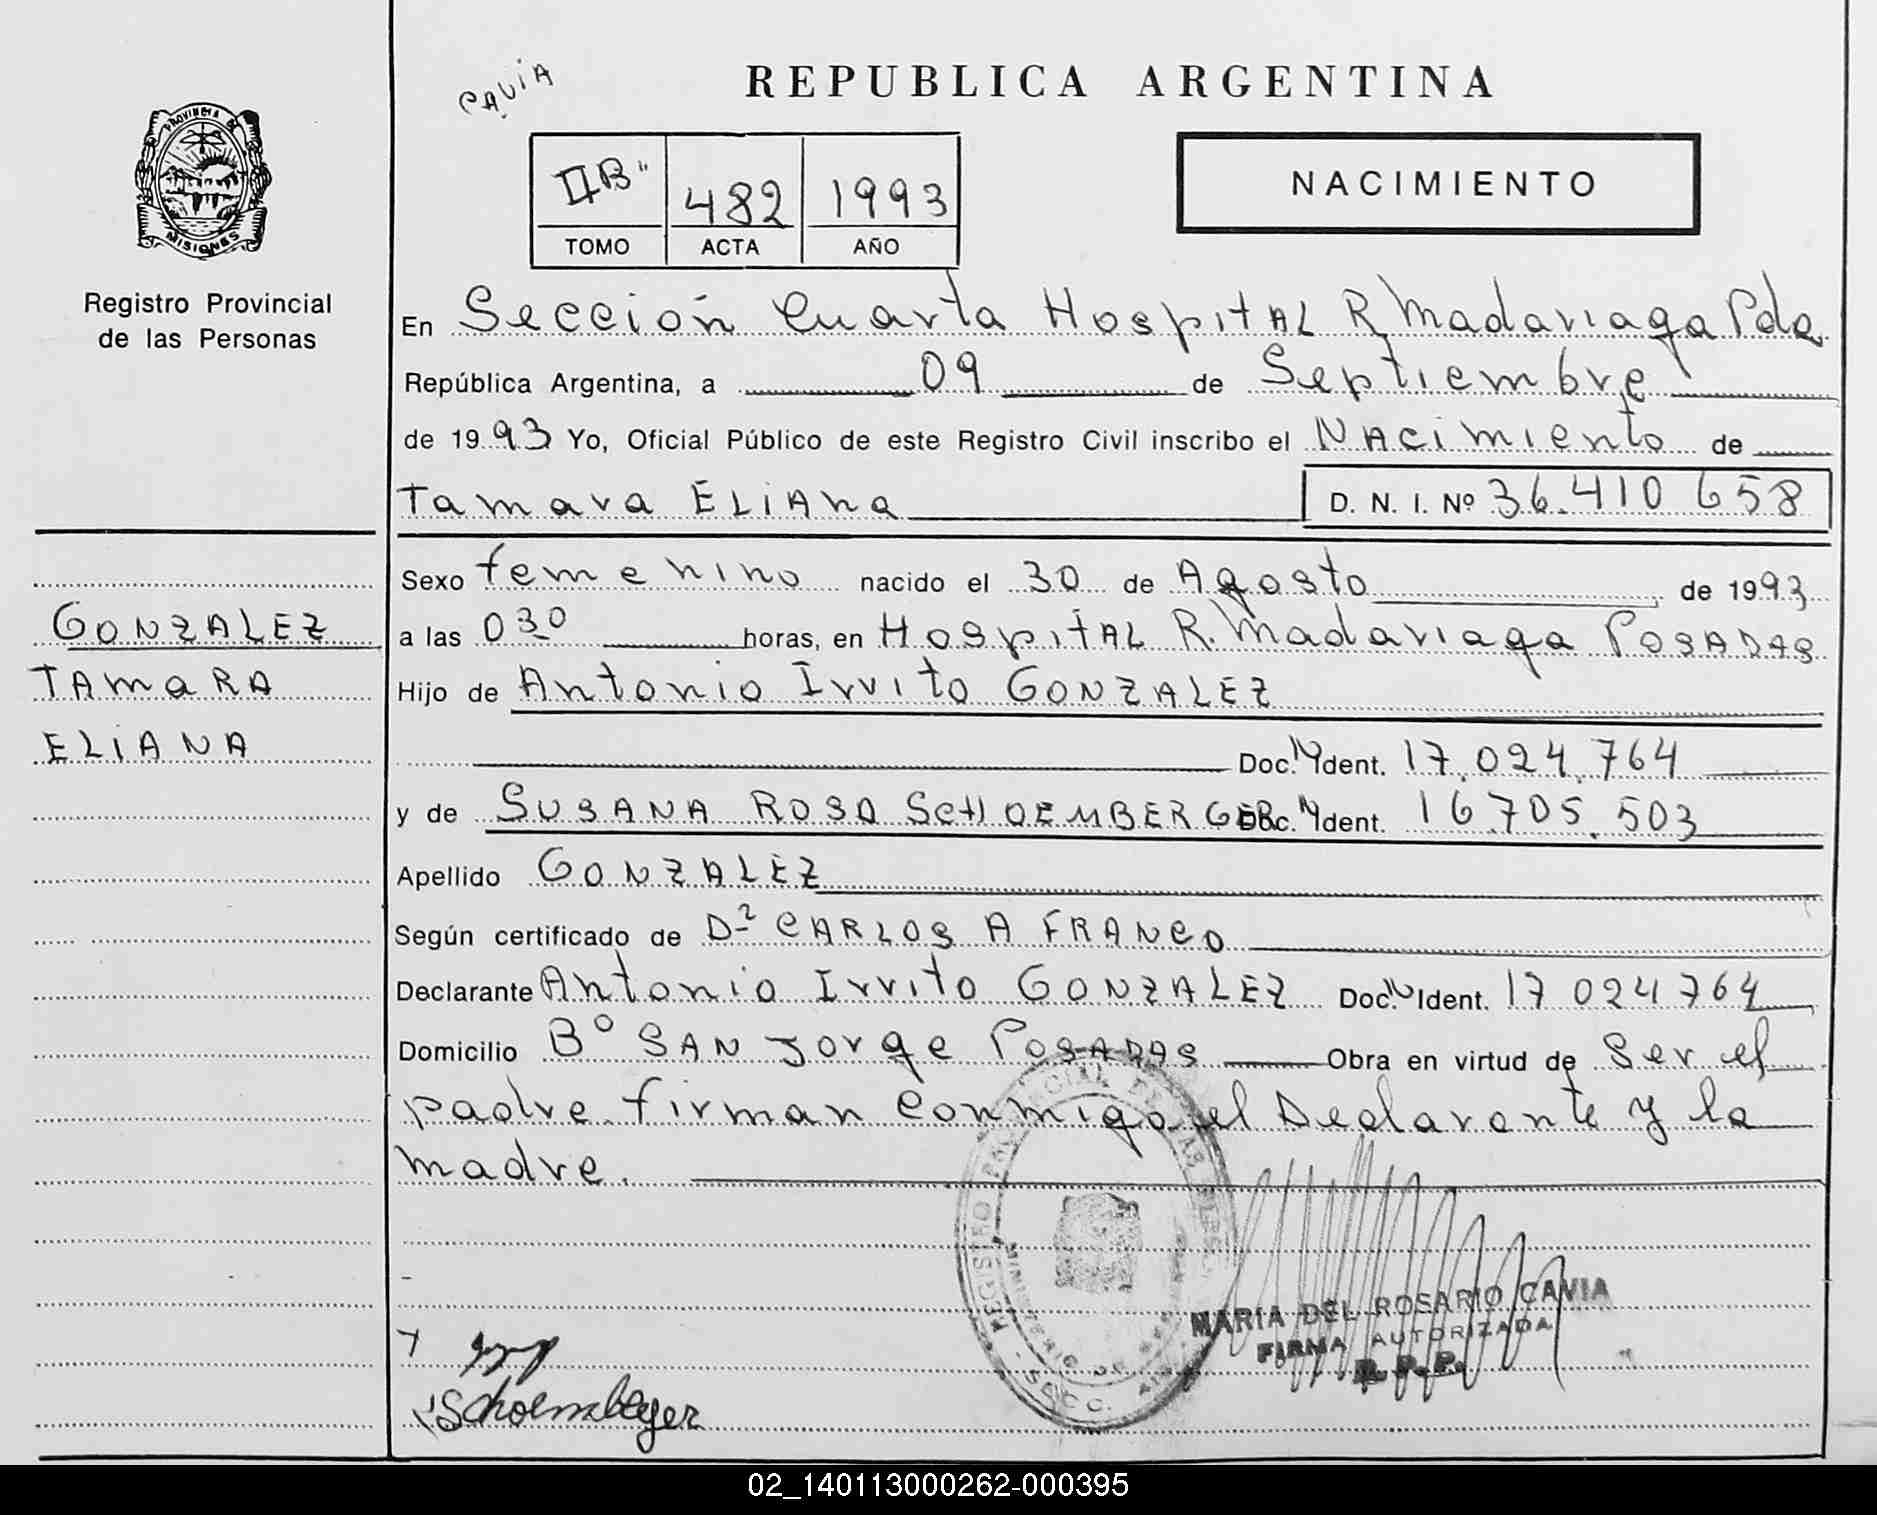 CAVIA
REPUBLICA ARGENTINA
II B"
482
1993
TOMO
ACTA
AÑO
NACIMIENTO
PROVINCIA DE
MISIONES
Registro Provincial
de las Personas
En Sección Cuarta Hospital R Madariaga Pdas
República Argentina, a 09 de Septiembre
de 1993 Yo, Oficial Público de este Registro Civil inscribo el NAcimiento de
Tamara ELiAna D. N. I. Nº 36.410 658
Sexo femenino nacido el 30 de Agosto de 1993
a las 030 horas, en HospitAL R. Madariaga POSADAS
Hijo de Antonio Irrito GONZALEZ
Doc. N Ident. 17.024.764
y de SUSANA ROSA SCHOEMBERGER Doc. N Ident. 16.705.503
Apellido GONZALEZ
Según certificado de Dr CARLOS A FRANCO
Declarante Antonio Irrito GONZALEZ Doc. N Ident. 17 024 764
Domicilio Bº SAN Jorge POSADAS Obra en virtud de Ser el
padre. firman conmigo el Declarante y la
madre.
GONZALEZ
TAMARA
ELIANA
REGISTRO
MINISTERIO DE
SECC.
MARIA DEL ROSARIO CAVIA
FIRMA AUTORIZADA
R. P. P.
Schoemberger
02_140113000262-000395